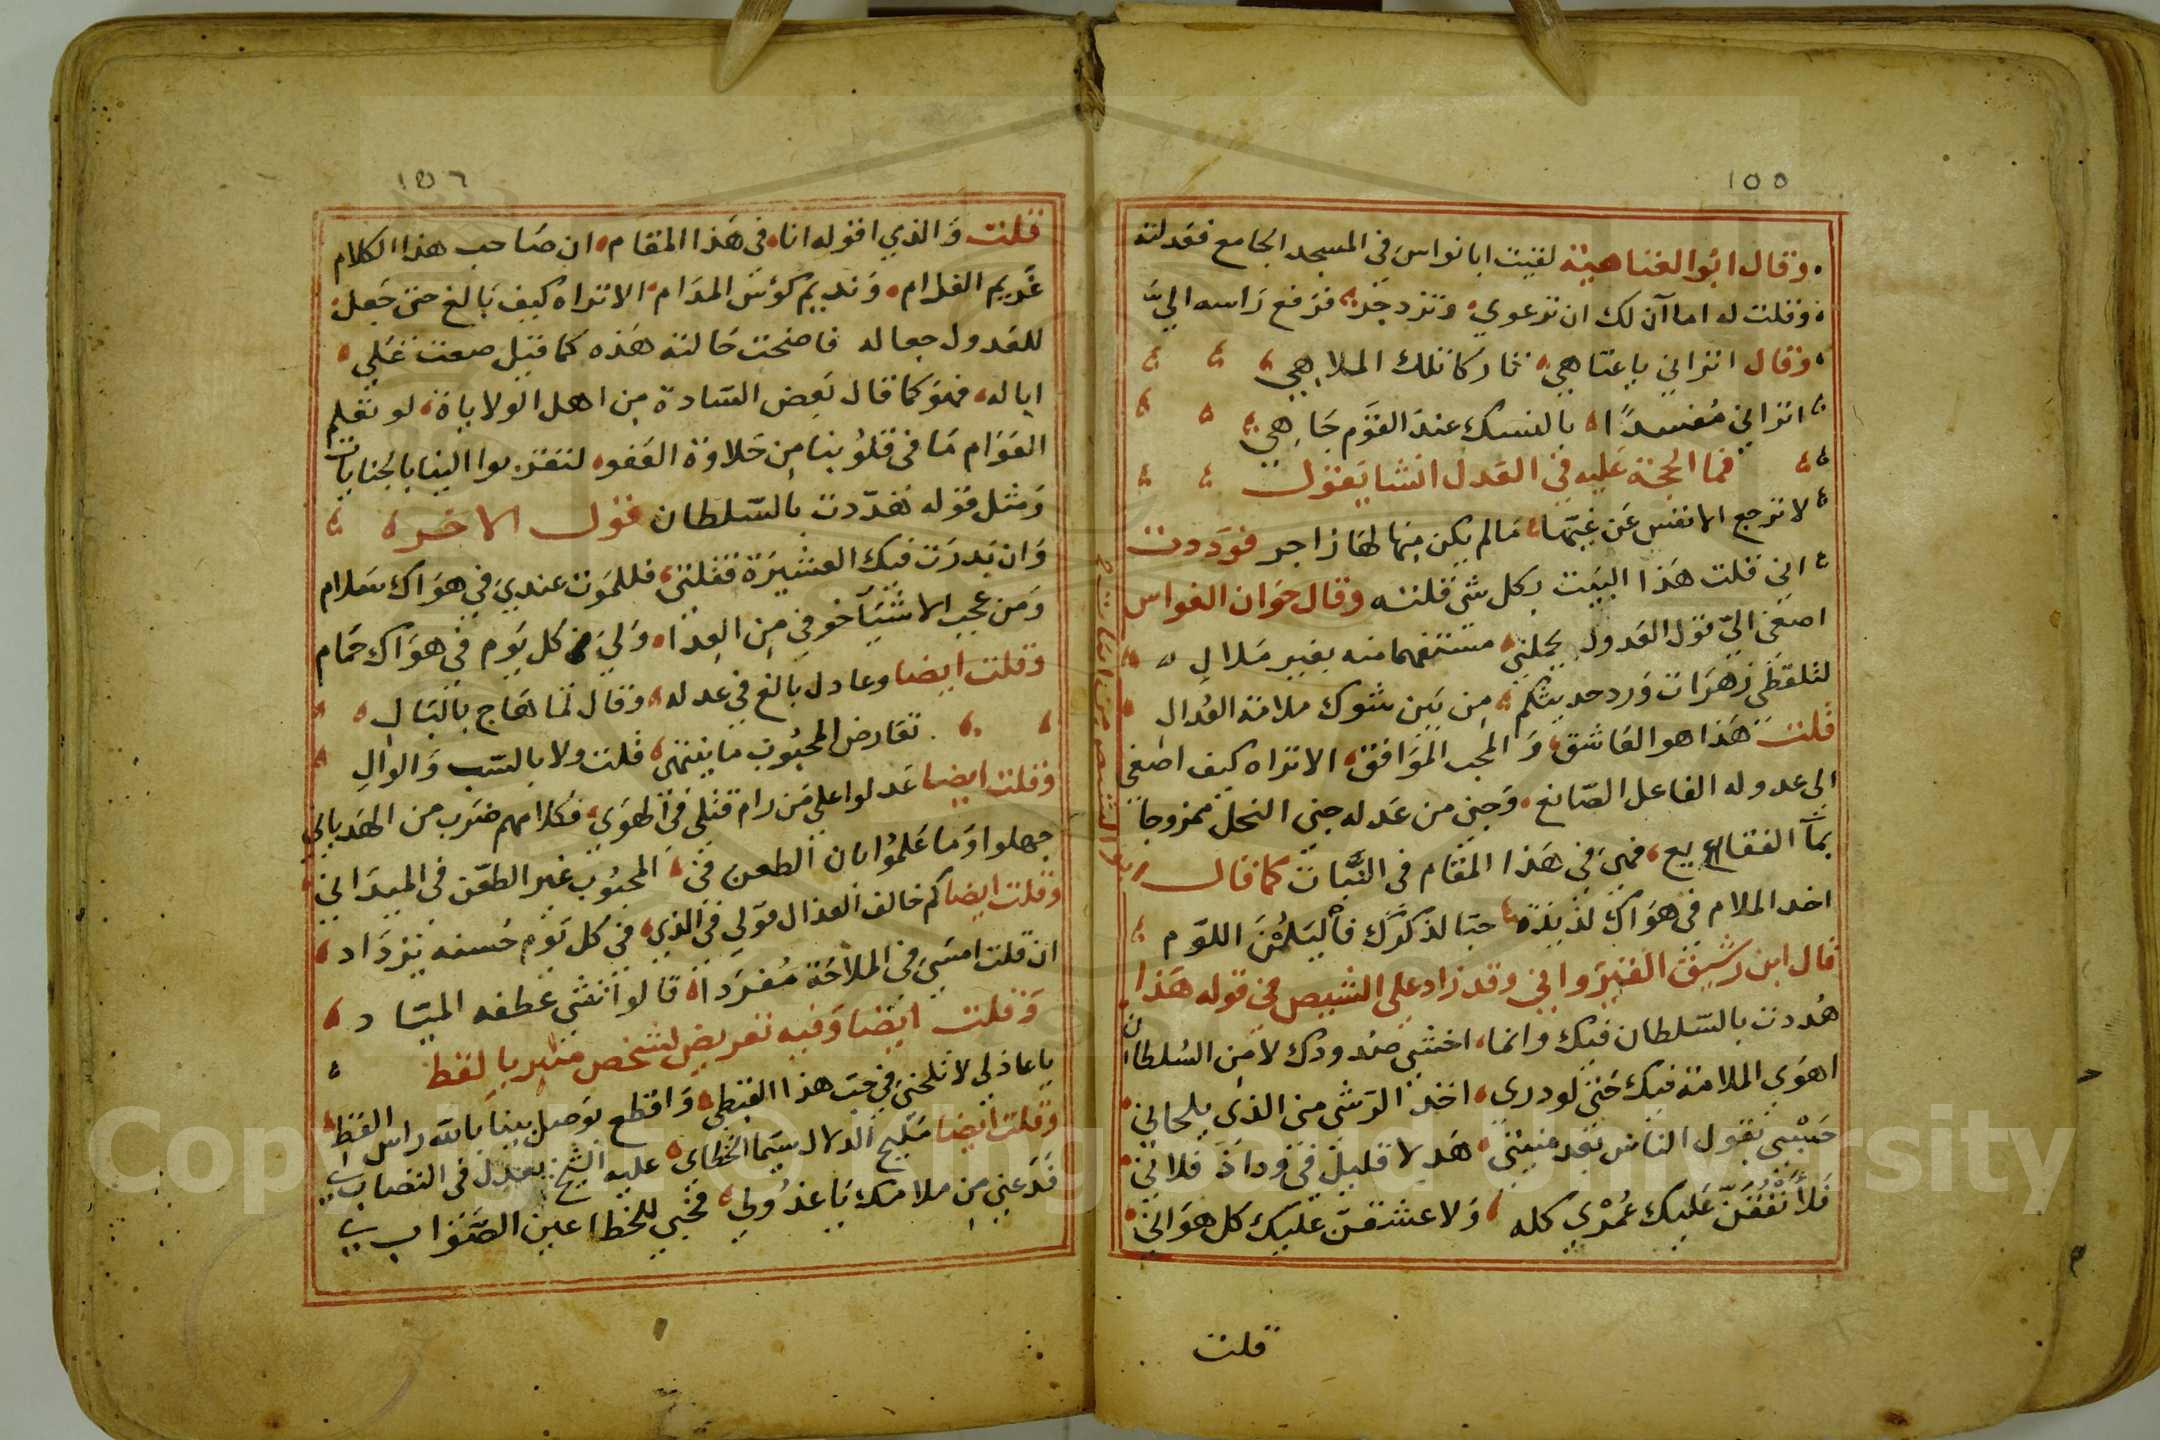 ١٥٥
وقال ابو العتاهية لقيت ابا نواس في المسجد الجامع فعذلته
وقلت له اما آن لك ان ترعوي وتزدجر فرفع راسه الي
وقال اتراني يا عتاهي تاركا تلك الملاهي
اتراني مفسدًا بالنسك عند القوم جاهي
فما الحجة عليه في العدل انشا يقول
لا ترجع الانفس عن غيها ما لم يكن منها لها زاجر فوددت
اني قلت هذا البيت بكل شي قلته وقال جوان الغواس
اصغى الي قول العدول بجملتي مستفهما منه بغير ملال
لتلقطي زهرات ورد حديثكم من بين شوك ملامة العدال
قلت هذا هو العاشق والمحب الموافق الا تراه كيف اصغى
الى عدوله الفاعل الصانع وجني من عدله جني النحل ممزوجا
بمآ الفقاقيع فهي في هذا المقام في الثبات كما قال
ابو الشيص من ابيات
اجد الملام في هواك لذيذة حبا لذكرك فليلمني اللوم
قال ابن رشيق القيرواني وقد زاد على الشيص في قوله هذا
هددت بالسلطان فيك وانما اخشى صدودك لا من السلطان
اهوى الملامة فيك حتى لو درى اخذ الرشى مني الذي يلحاني
حسبي بقول الناس بعد منيتي هد لا قليل في وداد فلاني
فلأنفقن عليك عمري كله ولاعشقن عليك كل هواني
قلت
١٥٦
قلت والذي اقوله انا في هذا المقام ان صاحب هذا الكلام
غريم الغرام ونديم كؤس المدام الا تراه كيف بالغ حتى جعل
للعدول جعاله فاضحت حالته هذه كما قيل صعت علي
اباله فهو كما قال بعض السادة من اهل الولاياة لو تعلم
العوام ما في قلوبنا من حلاوة العفو لتقربوا الينا بالجنايات
ومثل قوله هددت بالسلطان قول الاخر
وان بدرت فيك العشيرة فقلتي فللموت عندي في هواك سلام
ومن عجب الاشيآ خوفي من العدا ولي في كل يوم في هواك حمام
وقلت ايضا وعادل بالغ في عدله وقال لما هاج بالبال
تعارض المحبوب ما ينتهي قلت ولا بالسب والوال
وقلت ايضا عدلوا على من رام قتلي في الهوي فكلامهم ضرب من الهذيان
جهلوا وما علموا بان الطعن في المحبوب غير الطعن في الميدان
وقلت ايضا كم خالف العذال قولي في الذي في كل يوم حسنه يزداد
ان قلت امسي في الملاحة مفردا قالوا انثنى عطفه المياد
وقلت ايضا وفيه تعريض لشخص منبر بالقط
يا عاذلي لا تلحني في حب هذا القبطي واقطع بوصل بيننا بالله راس القط
وقلت ايضا مليح الدلال سيما الخطاي عليه الشيخ يعدل في التصابي
فدعني من ملامك يا عذولي محبي للخطا عين الصواب